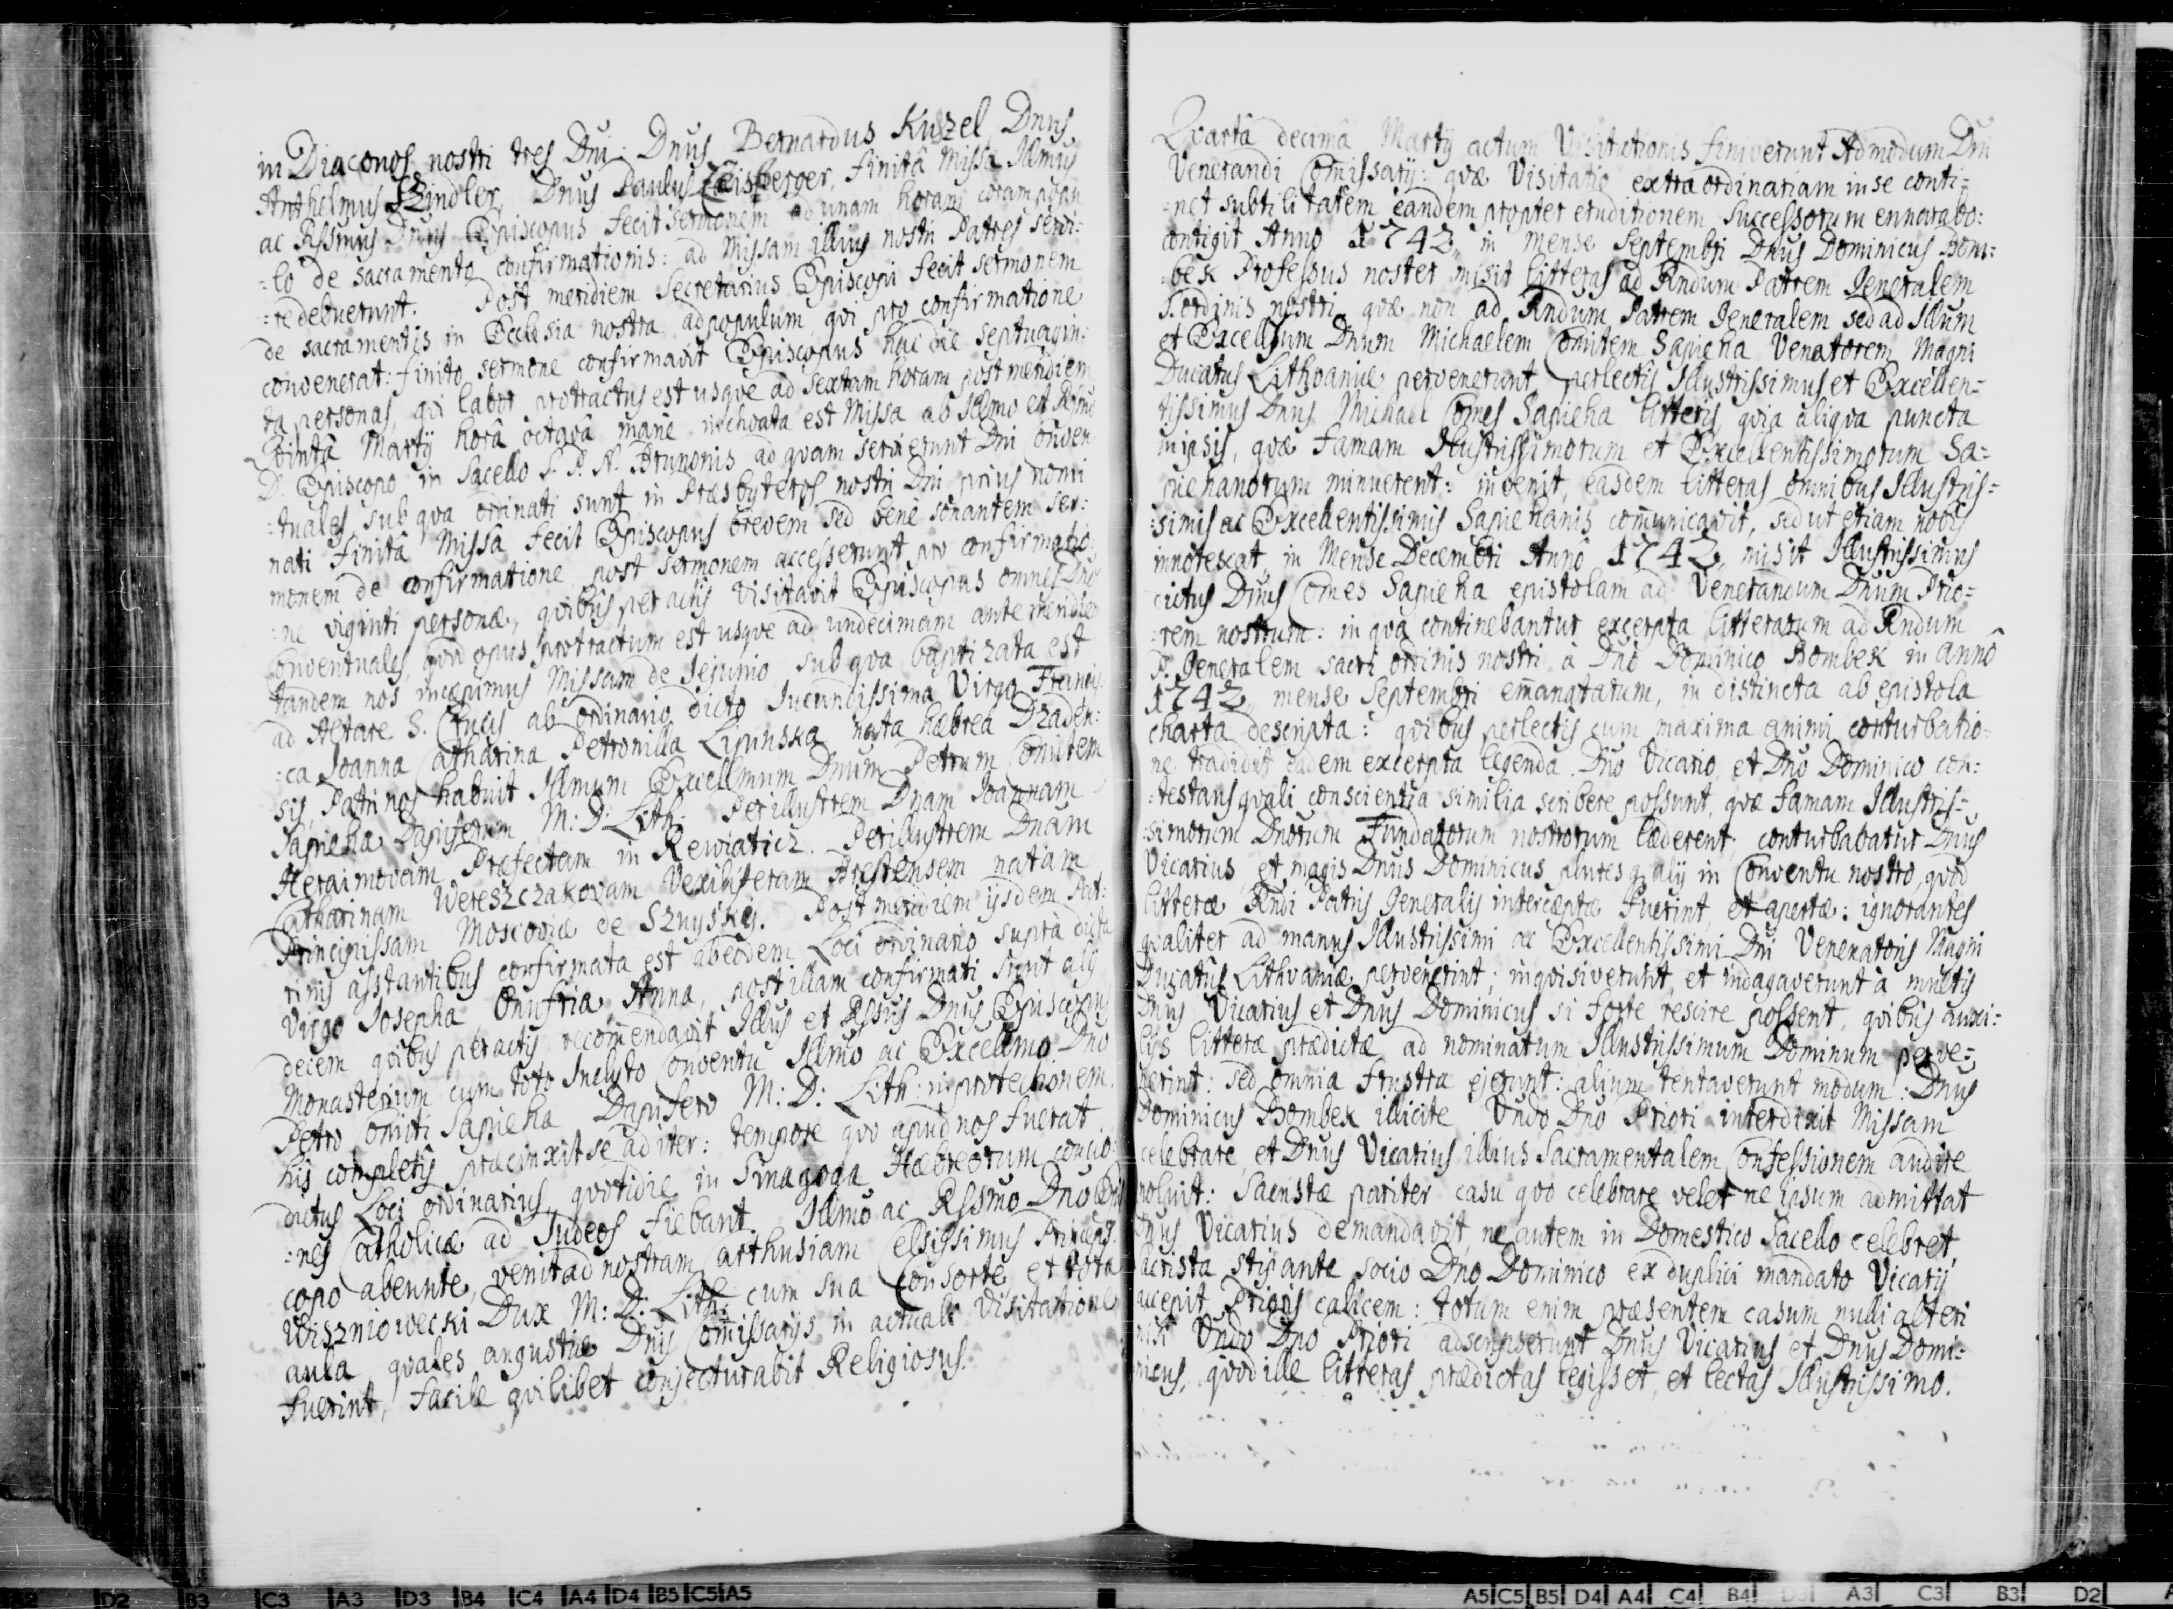 in Diaconos nostri tres Dni: Dnus Bernardus Kuszel Dnus
Anthelmus Bindler, Dnus Paulus Zeisberger, finitâ Missâ Illmus
ac Rssmus Dnus Episcopus fecit sermonem ad unam horam coram popu
=lo de sacramento confirmationis: ad Missam illius nostri Patres servi:
=re debuerunt. Post meridiem Secretarius Episcopi fecit sermonem
de sacramentis in Ecclesia nostra ad populum, qvi pro confirmatione
convenerat: finito sermone confirmavit Episcopus hac die septuagin:
ta personas, qvi labor protractus est usqve ad sextam horam post meridiem
Qvintâ Martij horâ octavâ mane inchoata est Missa ab Illmo et Rssmo
D. Episcopo in Sacello S. P. N. Brunonis ad qvam servierunt Dni Conven
=tuales sub qva ordinati sunt in Præsbyteros nostri Dni prius nomi
nati finitâ Missa fecit Episcopus brevem sed bene sonantem ser:
monem de confirmatione, post sermonem accesserunt pro confirmatio
=ne viginti personæ, qvibus peractis visitavit Episcopus omnes Dnos
Conventuales, qvod opus protractum est usqve ad undecimam ante meridiem
tandem nos incæpimus Missam de Jejunio, sub qva baptizata est
ad Altare S. Crucis ab ordinario dicto Jucundissima Virgo Francis
=ca Joanna Catharina Petronilla Lipinska nata hæbrea Draden:
sis, Patrinos habuit Illmum Excellmum Dnum Petrum Comitem
Sapieha Dapiferum M: D: Lith: Perillustrem Dnam Joannam
Heraimovam Præfectam in Rewiaticz. Perillustrem Dnam
Catharinam Wereszczakovam Vexiliferam Brestensem natam
Principissam Moscoviæ de Sznyskij. Post meridiem ijsdem Pat:
rinis asstantibus confirmata est ab eodem Loci ordinario supra dicta
Virgo Josepha Onufria Anna, post illam confirmati sunt alij
decem qvibus peractis recomendavit Illus et Rssus Dnus Episcopus
Monasterium cum toto Inclyto Conventu Illmo ac Excellmo Dno
Petro Comiti Sapieha Dapifero M: D: Lith: in protectionem.
his completis præcinxit se ad iter: tempore qvo apud nos fuerat
dictus Loci ordinarius, qvotidie in Sinagoga Hæbreorum concio
=nes Catholicæ ad Judeos fiebant. Illmo ac Rssmo Dno Epis
copo abeunte, venit ad nostram Carthusiam Celsissimus Princeps
Wiszniowecki Dux M: D: Lith: cum sua Consorte et tota
aula qvales angustiæ Dnis Comissarijs in actuali Visitatione
fuerint, facile qvilibet conjecturabit Religiosus.
Qvartâ decimâ Martij actum Visitationis finiverunt Admodum Dni
Venerandi Comissarij: qvæ Visitatio extra ordinariam in se conti=
=net subtilitatem eandem propter eruditionem Successorum ennarabo:
contigit Anno 1742 in mense Septembri Dnus Dominicus Bom:
=bek Professus noster misit litteras ad Rndum Patrem Generalem
S. ordinis nostri qvæ non ad Rndum Patrem Generalem sed ad Illum
et Excellsum Dnum Michaelem Comitem Sapieha Venatorem Magni
Ducatus Lithvaniæ pervenerunt, perlectis Illustrissimus et Excellen=
tissimus Dnus Michael Comes Sapieha litteris, qvia aliqva puncta
in ipsis, qvæ famam Illustrissimorum et Excellentissimorum Sa=
piehanorum minuerent: invenit, easdem litteras omnibus Illustris=
simis ac Excellentissimis Sapiehanis comunicavit, sed ut etiam nobis
innotescat, in Mense Decembri Anno 1742, misit Illustrissimus
dictus Dnus Comes Sapieha epistolam ad Venerandum Dnum Prio=
=rem nostrum: in qva continebantur excerpta litterarum ad Rndum
P. Generalem sacri ordinis nostri à Dno Dominico Bombek in annô
1742 mense Septembri emanatarum, in distincta ab epistola
charta descripta: qvibus perlectis cum maxima animi conturbatio=
ne tradidit eadem excerpta legenda Dno Vicario, et Dno Dominico con:
=testans qvali conscientia similia scribere possunt, qvæ famam Illustris=
simorum Dnorum Fundatorum nostrorum læderent, conturbabatur Dnus
Vicarius et magis Dnus Dominicus plures q; alij in Conventu nostro, qvod
litteræ Rndi Patris Generalis interceptæ fuerint, et apertæ: ignorantes
qvaliter ad manus Illustrissimi ac Excellentissimi Dni Venenatoris Magni
Ducatûs Lithvaniæ pervenerint; inqvisiverunt, et indagaverunt à multis
Dnus Vicarius et Dnus Dominicus si forte rescire possent, qvibus auxi:
lijs litteræ prædictæ ad nominatum Illustrissimum Dominum perve=
nerint: sed omnia frustra egerunt: alium tentaverunt modum: Dnus
Dominicus Bombek illicite Vndo Dno Priori interdixit Missam
celebrare, et Dnus Vicarius illius Sacramentalem Confessionem audire
noluit: Sacristæ pariter casu qvo celebrare velet ne ipsum admittat
Dnus Vicarius demandavit, ne autem in Domestico Sacello celebret,
Sacrista stipante socio Dno Dominico ex duplici mandato Vicarij
accepit Prioris calicem: totum enim præsentem casum nulli alteri
nisi Vndo Dno Priori adscripserunt Dnus Vicarius et Dnus Domi=
nicus, qvod ille litteras prædictas legisset, et lectas Illustrissimo.